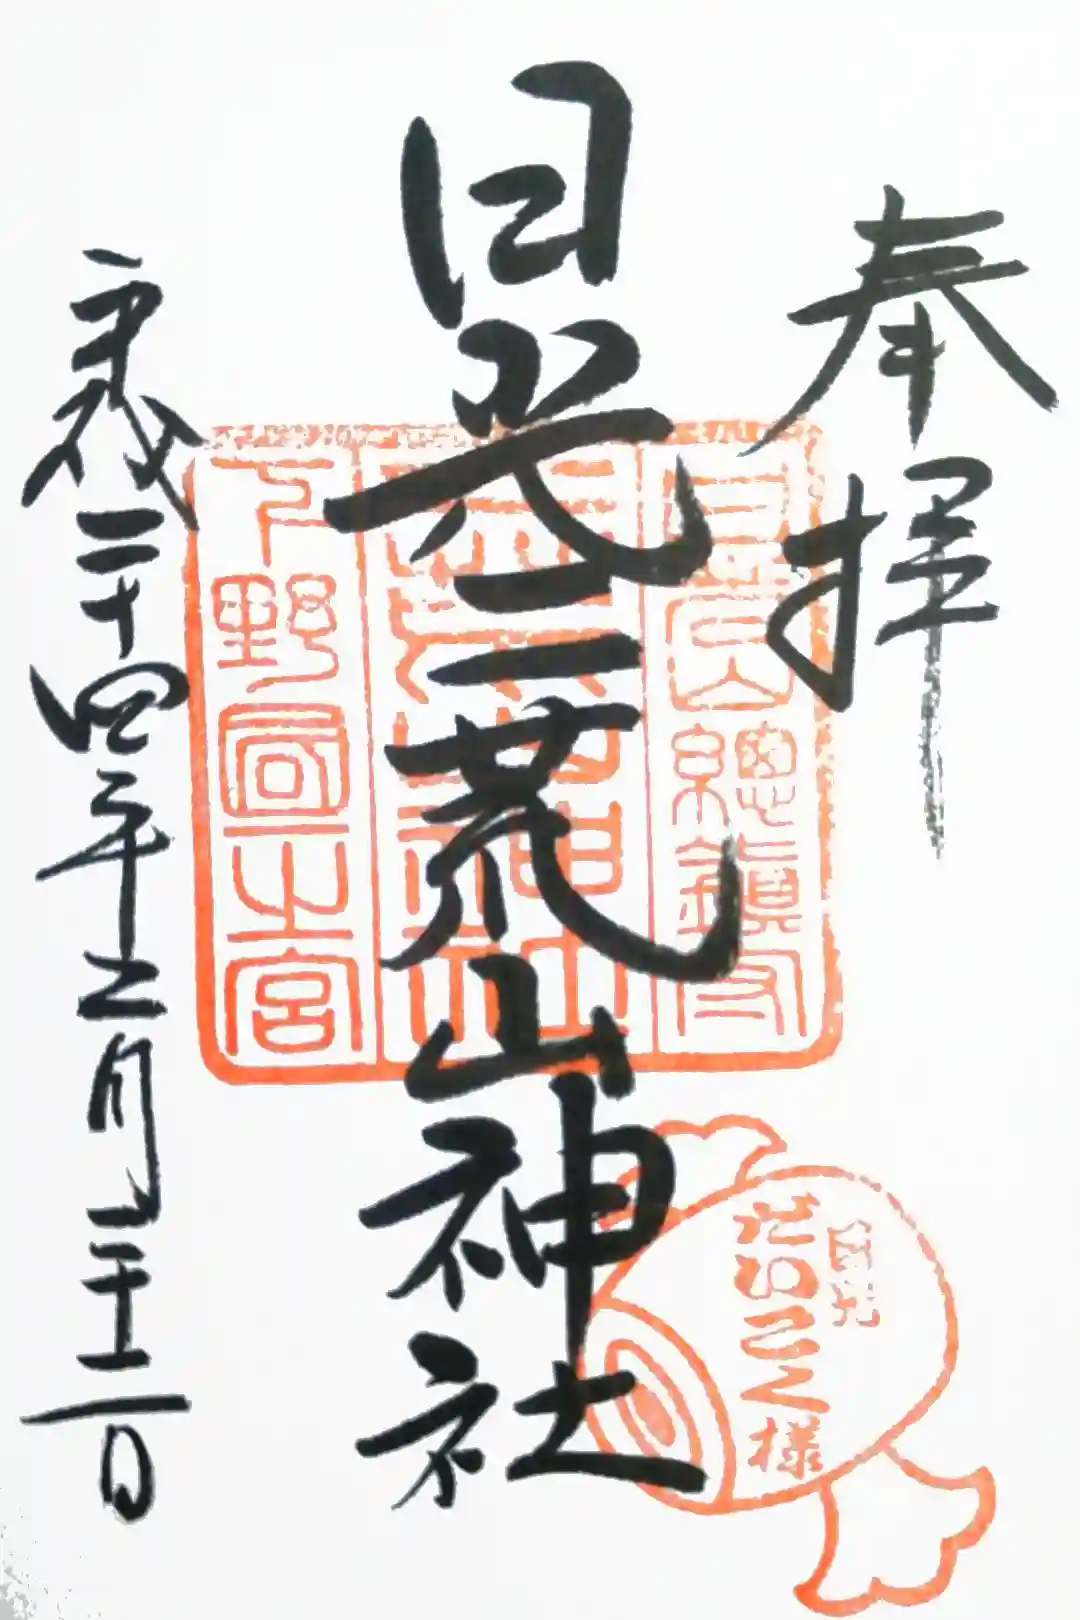 奉拝
日光二荒山神社
平成二十四年二月二十二日
日光山總鎮守
下野國一之宮
日光
だいこく様